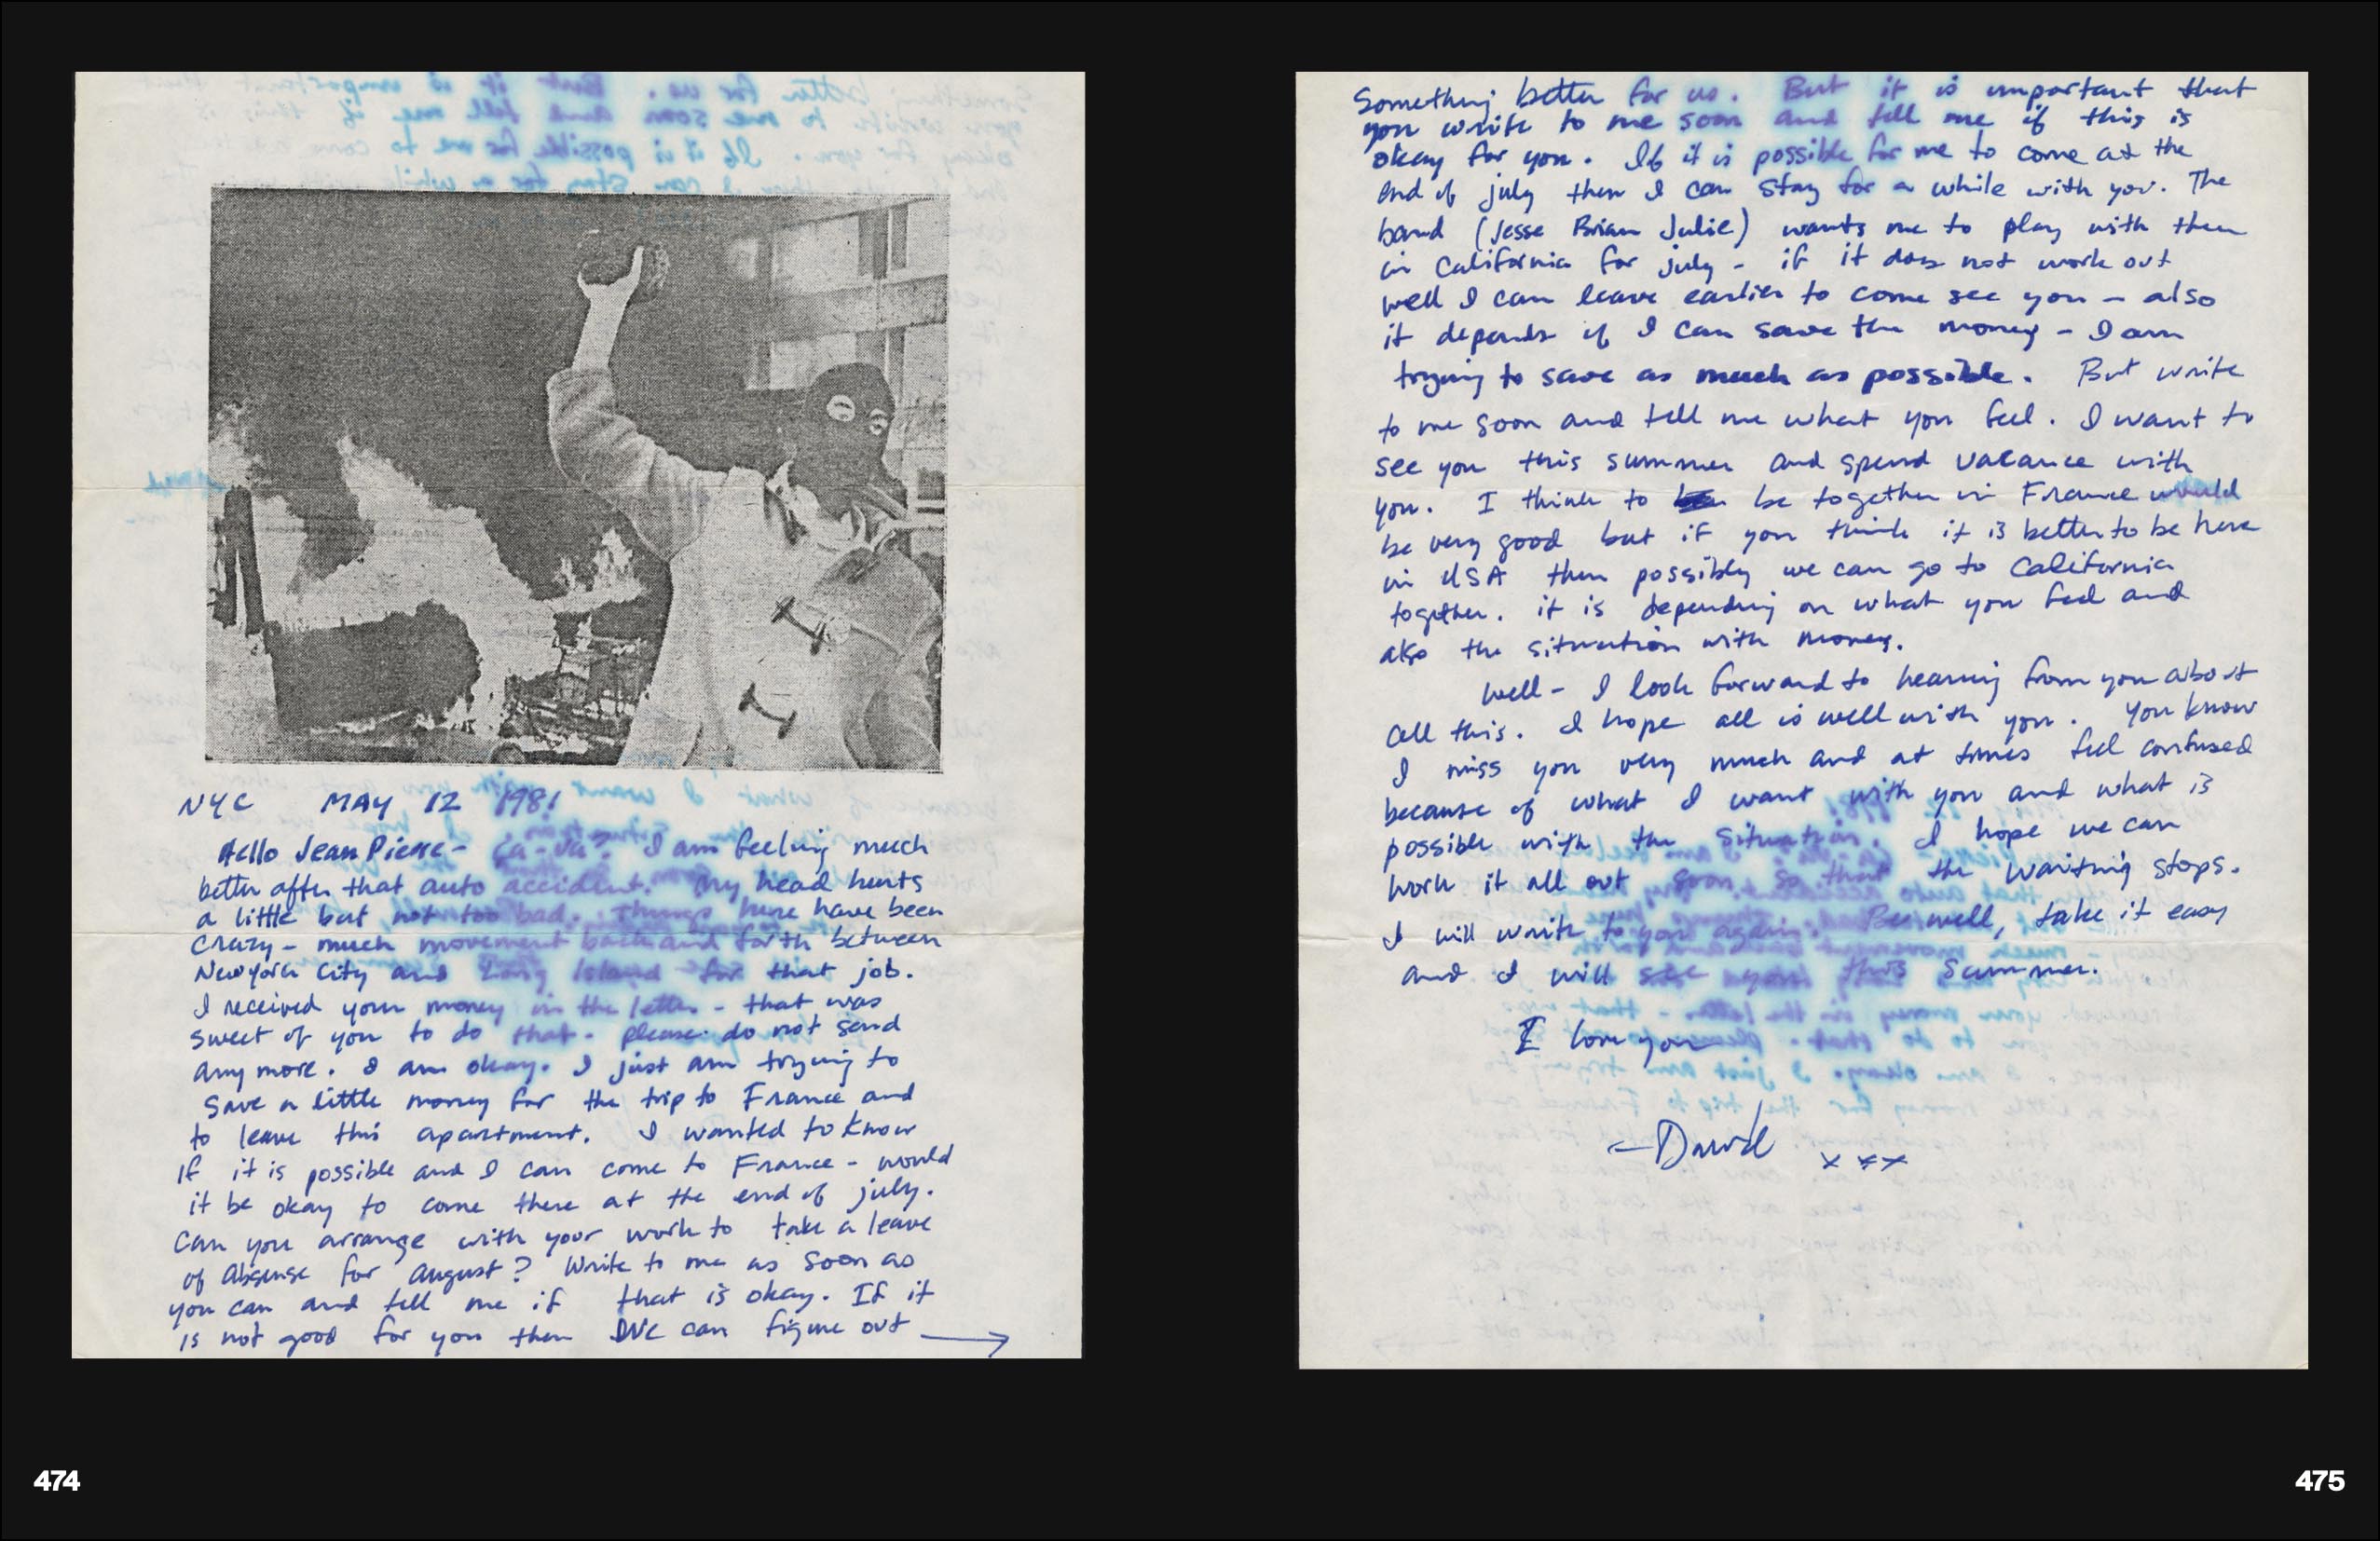 NYC MAY 12 1981
Hello Jean Pierre - ça-va? I am feeling much
better after that auto accident. My head hurts
a little but not too bad. Things here have been
crazy - much movement back and forth between
New York City and Long Island for that job.
I received your money in the letter - that was
sweet of you to do that. please do not send
any more. I am okay. I just am trying to
save a little money for the trip to France and
to leave this apartment. I wanted to know
if it is possible and I can come to France - would
it be okay to come there at the end of july.
can you arrange with your work to take a leave
of absense for august? Write to me as soon as
you can and tell me if that is okay. If it
is not good for you then we can figure out →
474
Something better for us. But it is important that
you write to me soon and tell me if this is
okay for you. If it is possible for me to come at the
end of july then I can stay for a while with you. The
band (Jesse Brian Julie) wants me to play with them
in California for july - if it does not work out
well I can leave earlier to come see you - also
it depends if I can save the money - I am
trying to save as much as possible. But write
to me soon and tell me what you feel. I want to
see you this summer and spend vacance with
you. I think to be together in France would
be very good but if you think it is better to be here
in USA then possibly we can go to California
together. it is depending on what you feel and
also the situation with money.
Well - I look forward to hearing from you about
all this. I hope all is well with you. You know
I miss you very much and at times feel confused
because of what I want with you and what is
possible with the situation. I hope we can
work it all out soon so that the waiting stops.
I will write to you again. Be well, take it easy
and I will see you this summer.
I love you
- David xxx
475